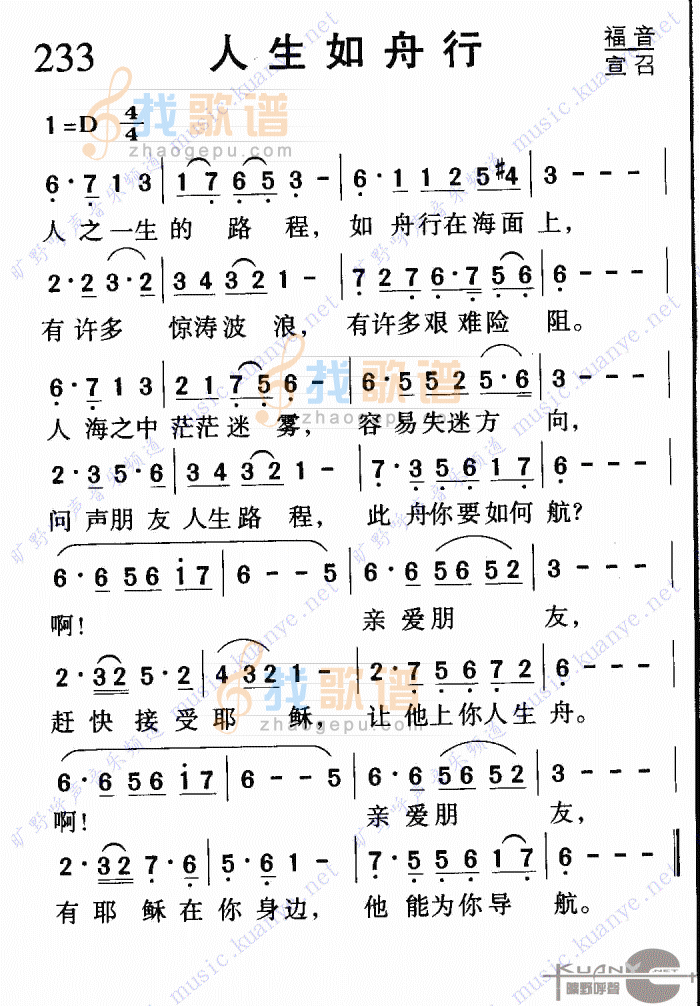 233 人生如舟行 福音
宣召
1=D 4/4
找歌谱
zhaogepu.com
6·7 1 3 | 1 7 6 5 3 - | 6·1 1 2 5 #4 | 3 - - - |
人之一生的 路 程, 如 舟行在海面上,
2·2 3·2 | 3 4 3 2 1 - | 7 2 7 6·7 5 6 | 6 - - - |
有许多 惊涛波 浪, 有许多艰难险 阻。
6·7 1 3 | 2 1 7 5 6 - | 6·5 5 2 5·6 | 3 - - - |
人 海之中 茫茫迷 雾, 容 易失迷方 向,
2·3 5·6 | 3 4 3 2 1 - | 7·3 5 6 1 7 | 6 - - - |
问 声朋友 人生路 程, 此 舟你要如何航?
6·6 5 6 i 7 | 6 - - 5 | 6·6 5 6 5 2 | 3 - - - |
啊! 亲 爱朋 友,
2·3 2 5·2 | 4 3 2 1 - | 2·7 5 6 7 2 | 6 - - - |
赶 快 接受耶 稣, 让 他上你人生舟。
找歌谱
zhaogepu.com
6·6 5 6 i 7 | 6 - - 5 | 6·6 5 6 5 2 | 3 - - - |
啊! 亲 爱朋 友,
2·3 2 7·6 | 5·6 1 - | 7·5 5 6 1 7 | 6 - - - ‖
有 耶 稣在你 身边, 他 能为你导 航。
旷野呼声音乐频道 music.kuanye.net
KUANYE.NET
旷野呼聲